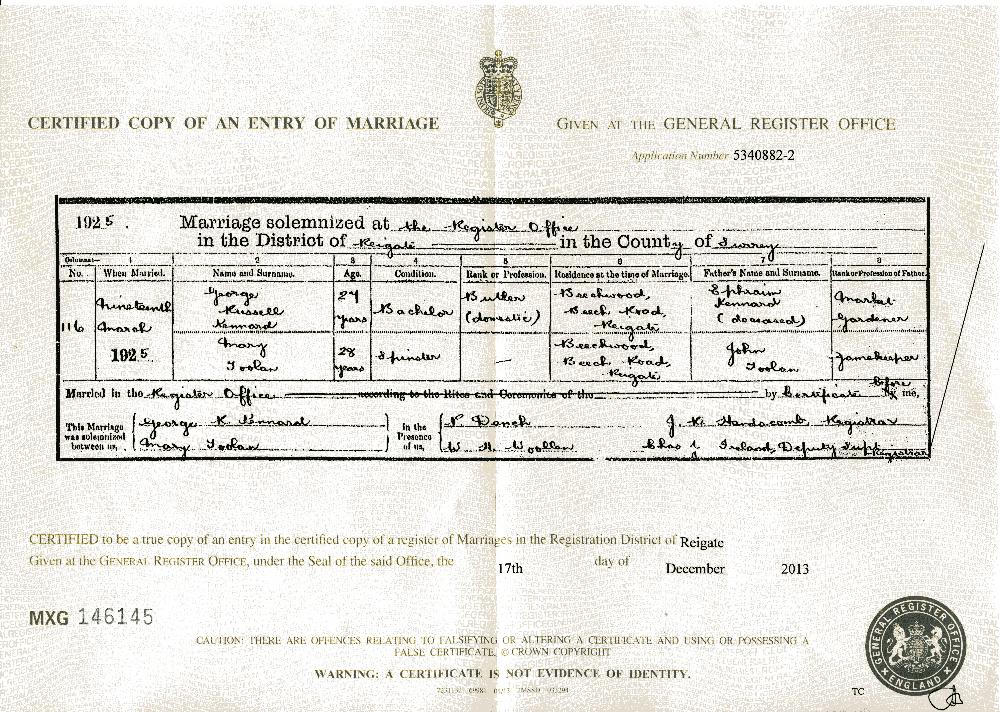 CERTIFIED COPY OF AN ENTRY OF MARRIAGE
GIVEN AT THE GENERAL REGISTER OFFICE
Application Number 5340882-2
1925. Marriage solemnized at the Register Office
in the District of Reigate in the County of Surrey
Columns:— 1 2 3 4 5 6 7 8
No. When Married. Name and Surname. Age. Condition. Rank or Profession. Residence at the time of Marriage. Father's Name and Surname. Rank or Profession of Father.
116 Nineteenth March 1925
George Russell Kennard 24 years Bachelor Butler (domestic) Beechwood, Beech Road, Reigate Ephraim Kennard (deceased) Market Gardener
Mary Toolan 28 years Spinster — Beechwood, Beech Road, Reigate John Toolan Gamekeeper
Married in the Register Office according to the Rites and Ceremonies of the by Certificate before me,
This Marriage was solemnized between us, George R. Kennard Mary Toolan
In the Presence of us, Dench W. H. Woollen
J. K. Handscomb Registrar
Chas Ireland, Deputy Supt Registrar
CERTIFIED to be a true copy of an entry in the certified copy of a register of Marriages in the Registration District of Reigate
Given at the GENERAL REGISTER OFFICE, under the Seal of the said Office, the 17th day of December 2013
MXG 146145
CAUTION: THERE ARE OFFENCES RELATING TO FALSIFYING OR ALTERING A CERTIFICATE AND USING OR POSSESSING A
FALSE CERTIFICATE. © CROWN COPYRIGHT
WARNING: A CERTIFICATE IS NOT EVIDENCE OF IDENTITY.
GENERAL REGISTER OFFICE
ENGLAND
TC